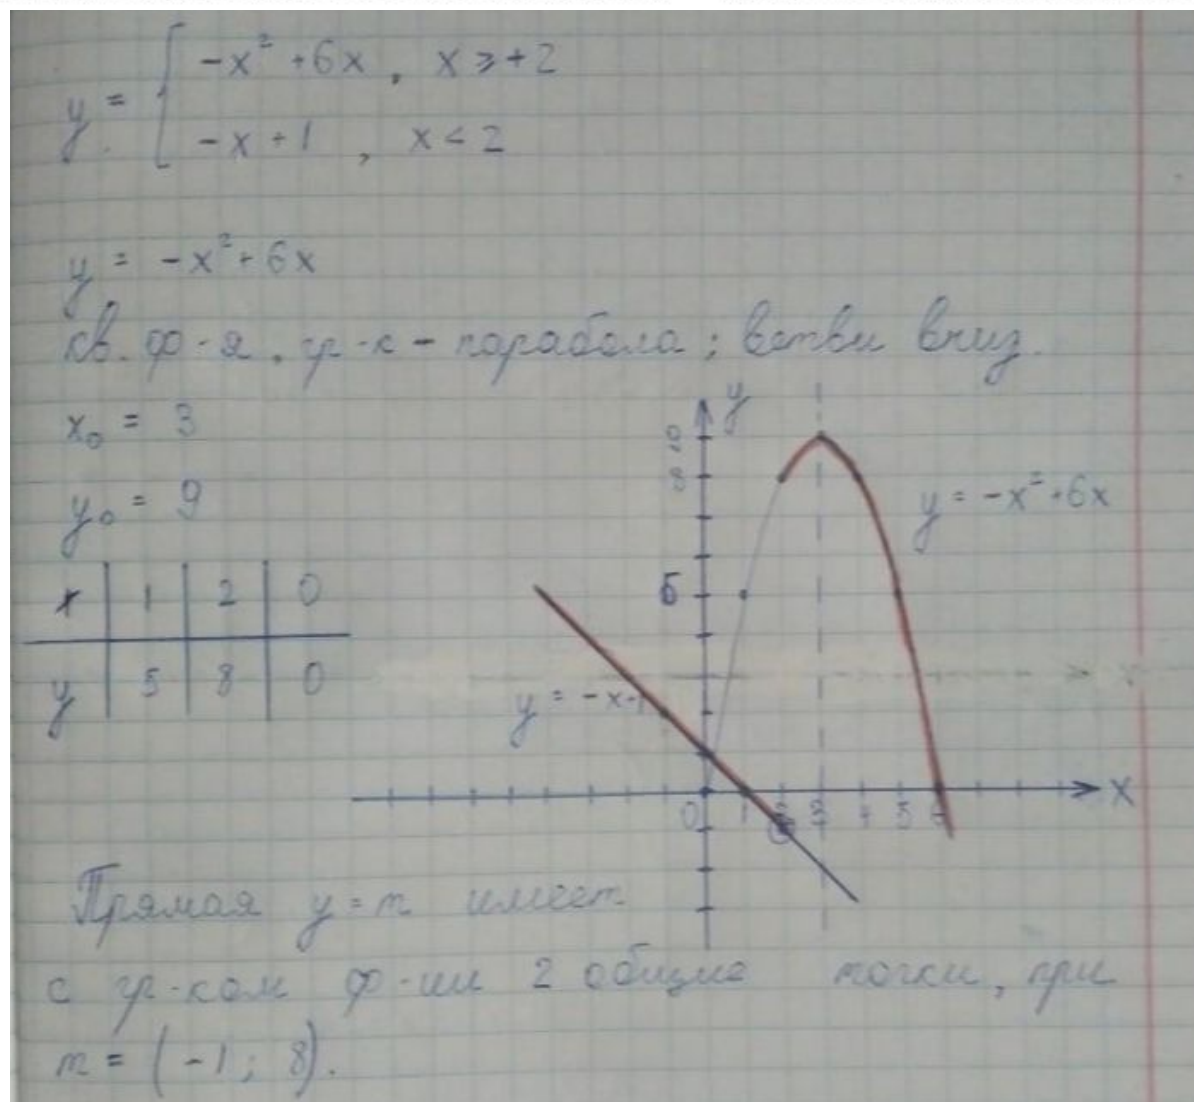 y = { -x² + 6x, x ≥ +2
-x + 1, x < 2
y = -x² + 6x
кв. ф-я, гр-к - парабола; ветви вниз.
x₀ = 3
y₀ = 9
x | 1 | 2 | 0
y | 5 | 8 | 0
y
9
8
y = -x² + 6x
5
y = -x+1
0 1 2 3 4 5 6 x
Прямая y = m имеет
с гр-ком ф-ии 2 общие точки, при
m = (-1; 8).